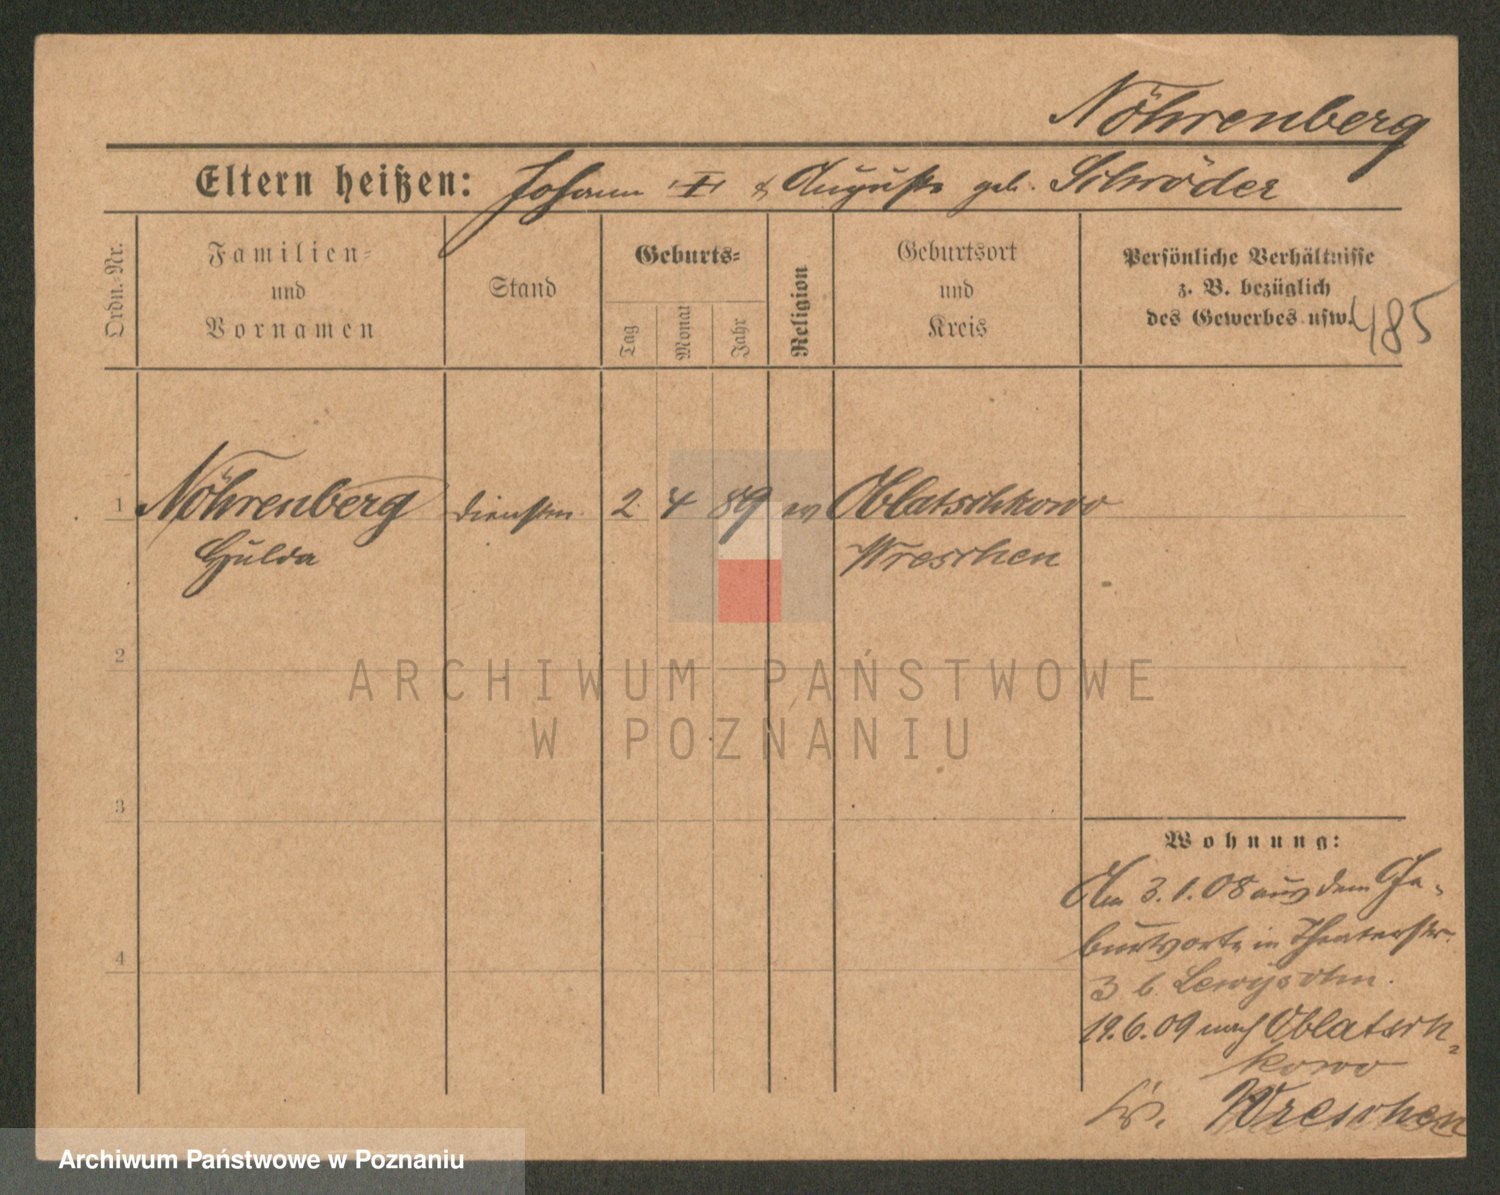 Nöhrenberg
Eltern heißen: Johann I & Auguste geb. Schröder
Ordn.-Nr.
Familien-
und
Vornamen
Stand
Geburts-
Tag
Monat
Jahr
Religion
Geburtsort
und
Kreis
Persönliche Verhältnisse
z. B. bezüglich
des Gewerbes usw.
485
1 Nöhrenberg Dienstm. 2 4 89 ev Oblatschkowo
Hulda Wreschen
2
ARCHIWUM PAŃSTWOWE
W POZNANIU
3
Wohnung:
Am 3.1.08 aus dem Ge-
burtsorte in Theaterstr.
3 b. Lewysohn.
4
19.6.09 nach Oblatsch-
kowo
Kr. Wreschen
Archiwum Państwowe w Poznaniu